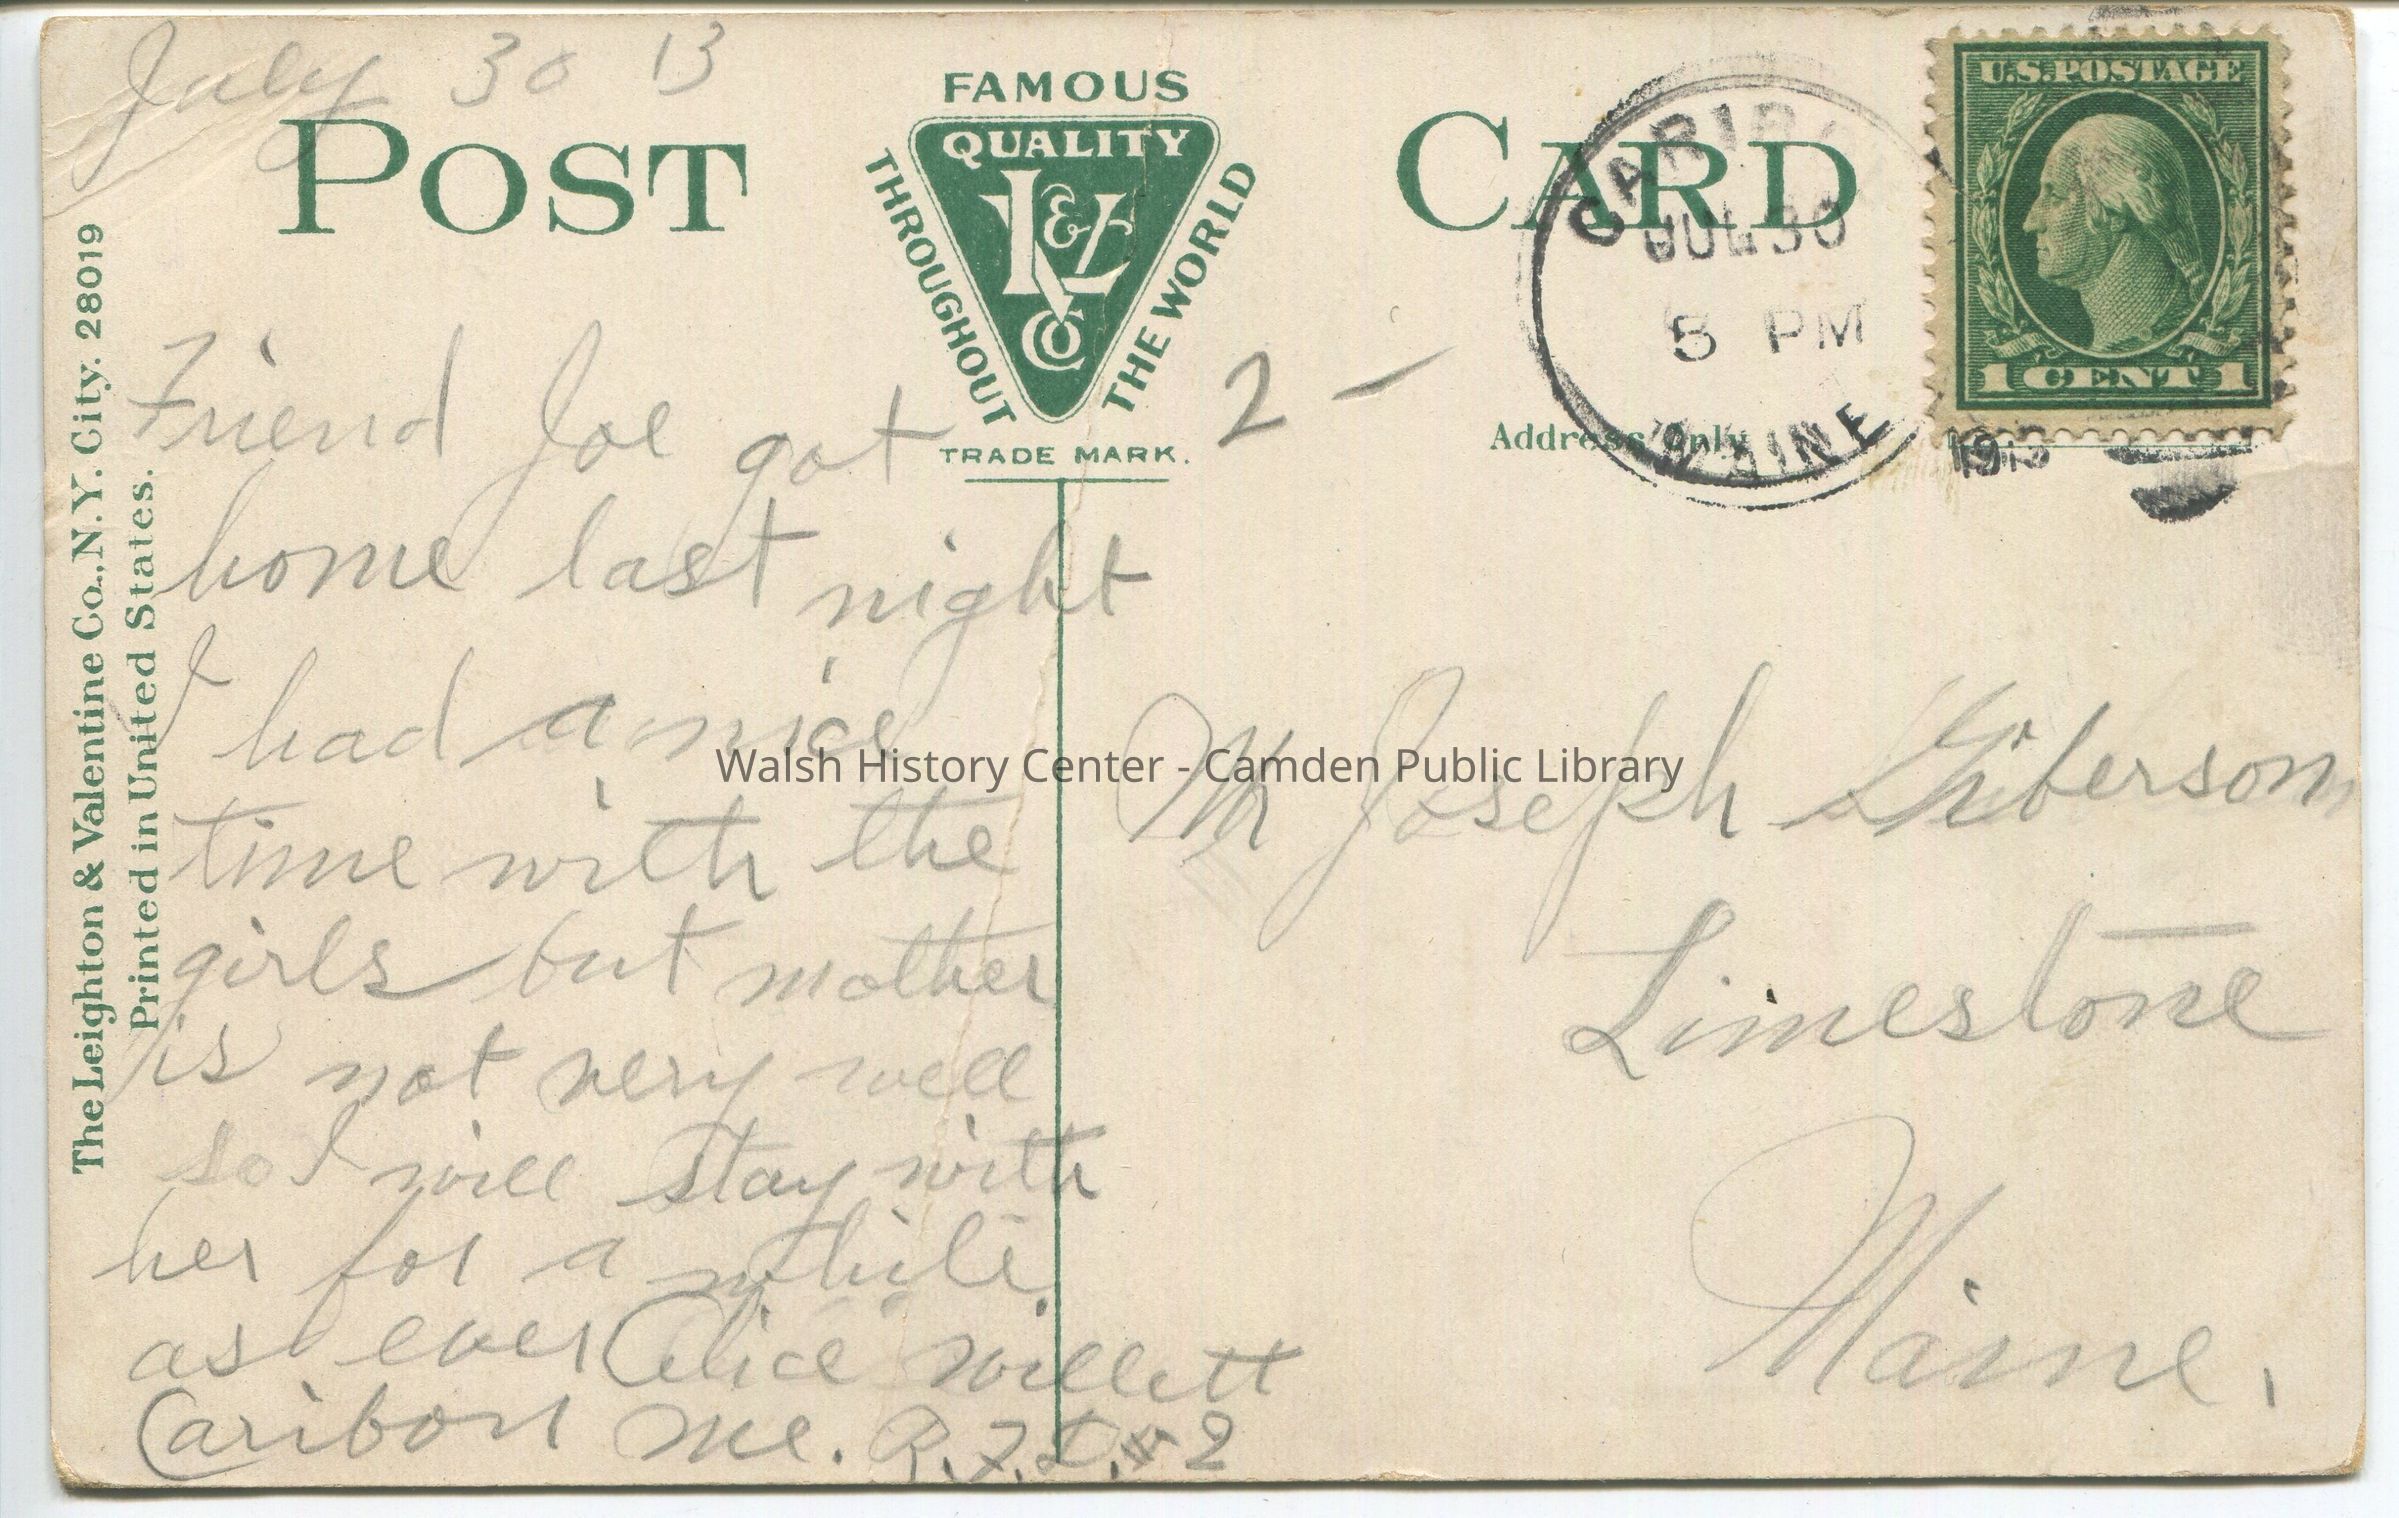 July 30 13
POST CARD
FAMOUS
QUALITY
THROUGHOUT
THE WORLD
L & V
Co
TRADE MARK.
CARIBOU
JUL 30
5 PM
MAINE
1913
U.S. POSTAGE
1 CENT 1
Address Only
2 -
The Leighton & Valentine Co., N.Y. City. 28019
Printed in United States.
Friend Joe got
home last night
I had a nice
time with the
girls but mother
is not very well
so I will stay with
her for a while
as ever Alice Willett
Caribou Me. R.F.D. # 2
Mr Joseph Giberson,
Limestone
Maine.
Walsh History Center - Camden Public Library